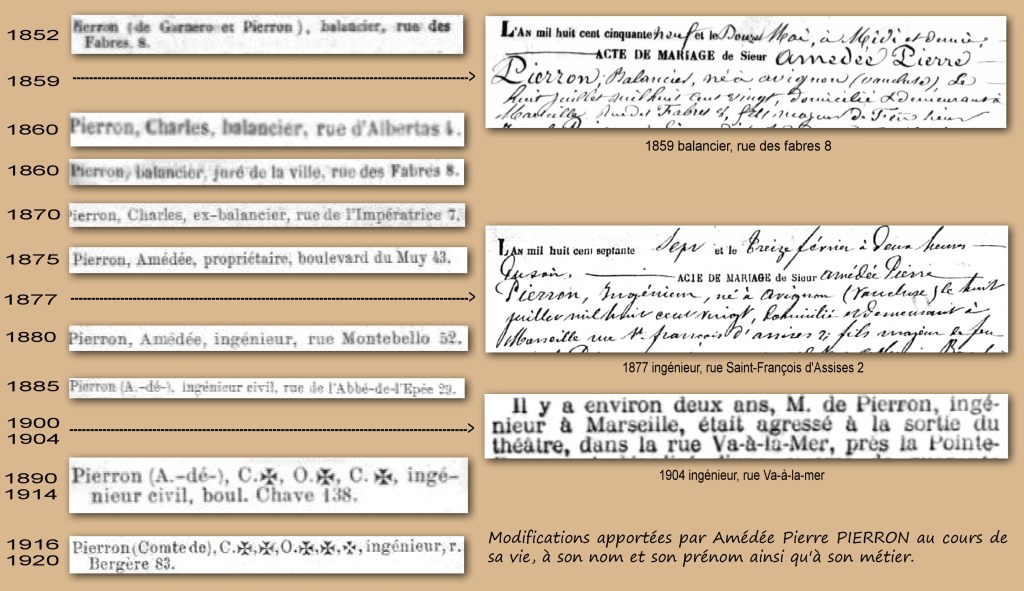 1852
Pierron (de Garnero et Pierron), balancier, rue des
Fabres, 8.
1859
1860
Pierron, Charles, balancier, rue d'Albertas 4.
1860
Pierron, balancier, juré de la ville, rue des Fabres 8.
1870
Pierron, Charles, ex-balancier, rue de l'Impératrice 7.
1875
Pierron, Amédée, propriétaire, boulevard du Muy 43.
1877
1880
Pierron, Amédée, ingénieur, rue Montebello 52.
1885
Pierron (A.-dé-), ingénieur civil, rue de l'Abbé-de-l'Epée 29.
1900
1904
1890
1914
Pierron (A.-dé-), C.✠, O.✠, C. ✠, ingé-
nieur civil, boul. Chave 138.
1916
1920
Pierron (Comte de), C.✠,✠,O.✠,✠,✠, ingénieur, r.
Bergère 83.
L'AN mil huit cent cinquante neuf et le Douze Mai, à Midi et demie,
ACTE DE MARIAGE de Sieur Amédée Pierre
Pierron, Balancier, né à avignon (vaucluse), Le
huit juillet mil huit cent vingt, domicilié & demeurant à
Marseille, Rue des Fabres 8, fils majeur de
1859 balancier, rue des fabres 8
L'AN mil huit cent septante Sept et le Treize février à Deux heures
ACTE DE MARIAGE de Sieur Amédée Pierre
Pierron, Ingénieur, né à avignon (Vaucluse) le huit
juillet mil huit cent vingt, domicilié et demeurant à
Marseille rue St. françois d'assises 2, fils majeur de feu
1877 ingénieur, rue Saint-François d'Assises 2
Il y a environ deux ans, M. de Pierron, ingé-
nieur à Marseille, était agressé à la sortie du
théâtre, dans la rue Va-à-la-Mer, près la Pointe-
1904 ingénieur, rue Va-à-la-mer
Modifications apportées par Amédée Pierre PIERRON au cours de
sa vie, à son nom et son prénom ainsi qu'à son métier.